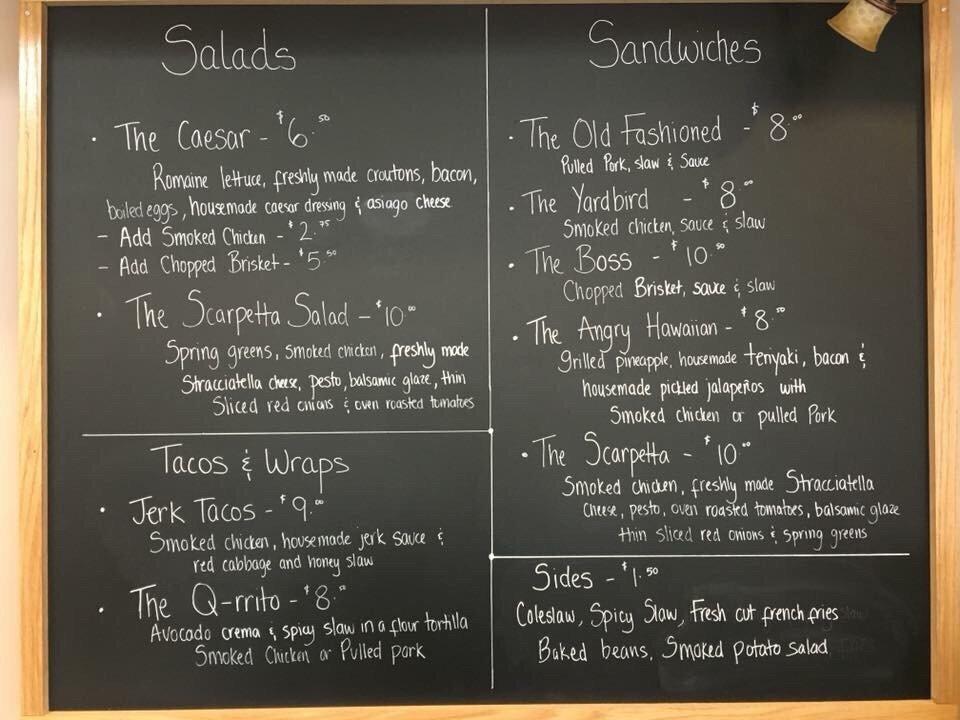 Salads
• The Caesar - $6.50
Romaine lettuce, freshly made croutons, bacon,
boiled eggs, housemade caesar dressing & asiago cheese
- Add Smoked Chicken - $2.75
- Add Chopped Brisket - $5.50
• The Scarpetta Salad - $10.00
Spring greens, smoked chicken, freshly made
Stracciatella cheese, pesto, balsamic glaze, thin
Sliced red onions & oven roasted tomatoes
Tacos & Wraps
• Jerk Tacos - $9.00
Smoked chicken, housemade jerk sauce &
red cabbage and honey slaw
• The Q-rrito - $8.50
Avocado crema & spicy slaw in a flour tortilla
Smoked Chicken or Pulled pork
Sandwiches
• The Old Fashioned - $8.00
Pulled Pork, slaw & Sauce
• The Yardbird - $8.00
Smoked chicken, sauce & slaw
• The Boss - $10.50
Chopped Brisket, sauce & slaw
• The Angry Hawaiian - $8.50
Grilled pineapple, housemade teriyaki, bacon &
housemade pickled jalapeños with
Smoked chicken or pulled Pork
• The Scarpetta - $10.00
Smoked chicken, freshly made Stracciatella
Cheese, pesto, oven roasted tomatoes, balsamic glaze
thin sliced red onions & spring greens
Sides - $1.50
Coleslaw, Spicy Slaw, Fresh cut french fries
Baked beans, Smoked potato salad